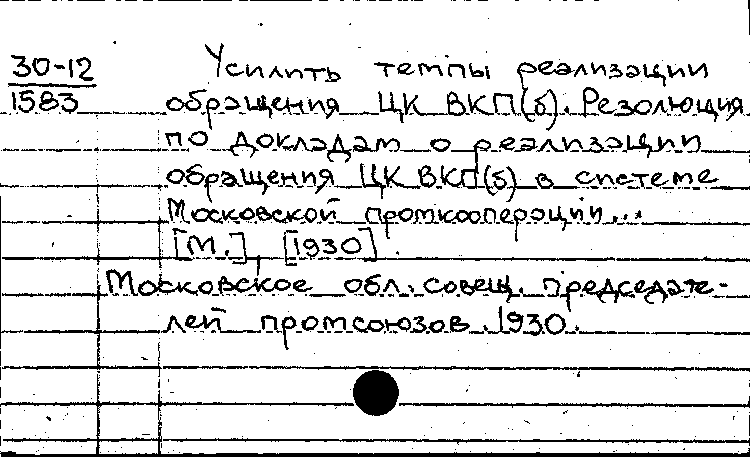 30-12
1583
Усилить темпы реализации
обращения ЦК ВКП(б). Резолюция
по докладам о реализации
обращения ЦК ВКП(б) в системе
Московской промкооперации...
[М.], [1930].
Московское обл. совещ. председате-
лей промсоюзов. 1930.